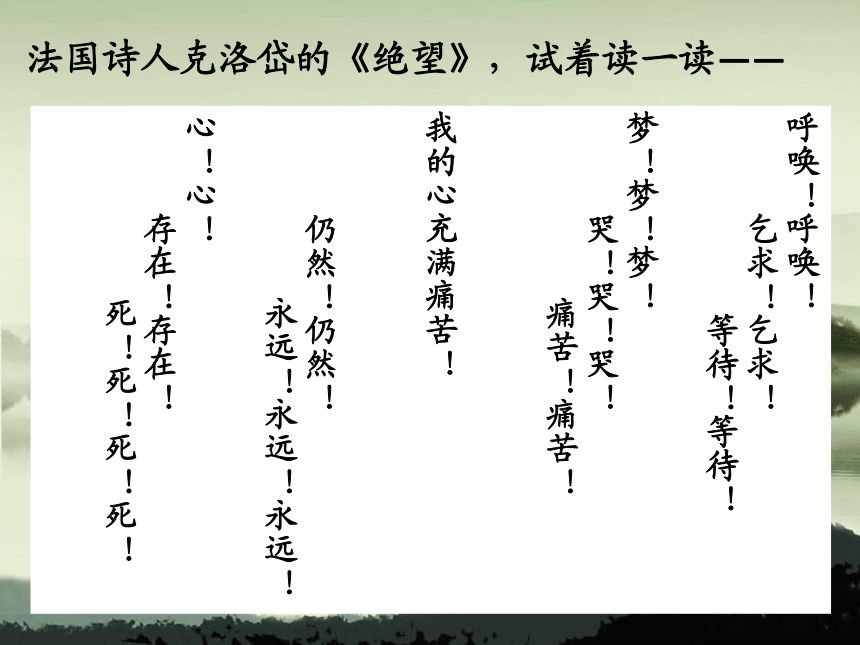 法国诗人克洛岱的《绝望》，试着读一读——
呼唤！呼唤！
乞求！乞求！
等待！等待！
梦！梦！梦！
哭！哭！哭！
痛苦！痛苦！
我的心充满痛苦！
仍然！仍然！
永远！永远！永远！
心！心！
存在！存在！
死！死！死！死！